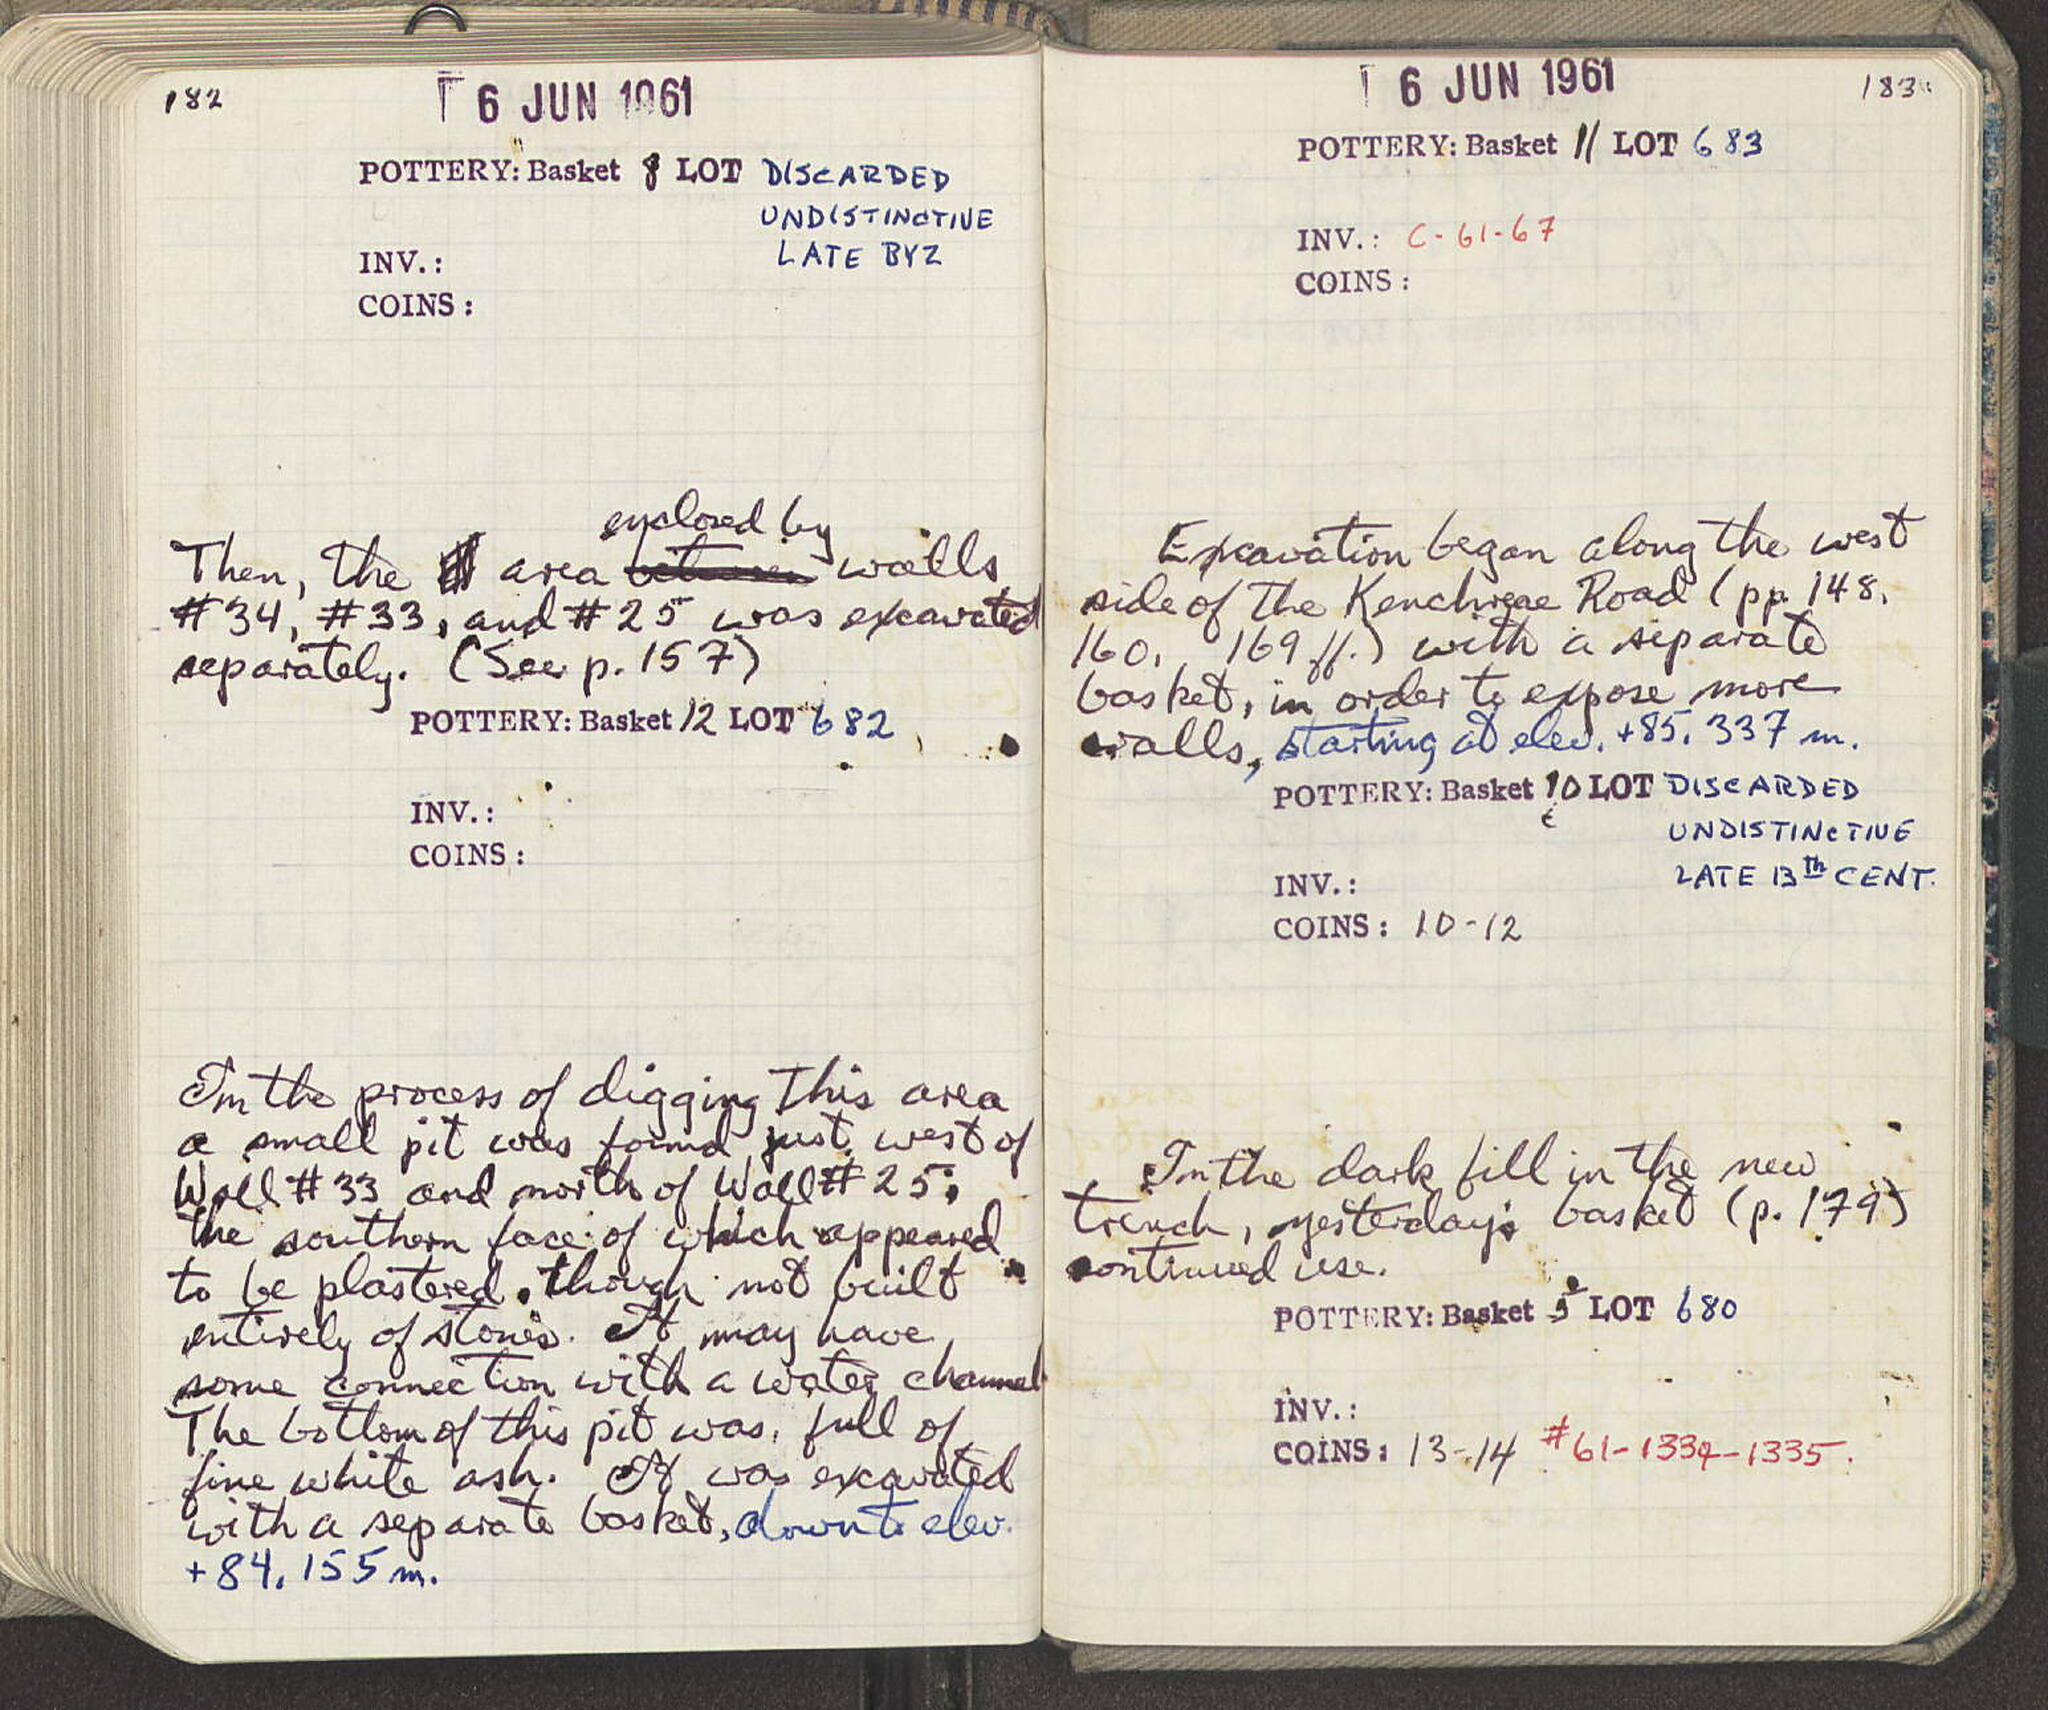 182
6 JUN 1961
POTTERY: Basket 8 LOT DISCARDED
UNDISTINCTIVE
INV.: LATE BYZ
COINS:
enclosed by
Then, the area between walls
#34, #33, and #25 was excavated
separately. (See p. 157)
POTTERY: Basket 12 LOT 682
INV.:
COINS:
In the process of digging this area
a small pit was found just west of
Wall #33 and north of Wall #25,
the southern face of which appeared
to be plastered, though not built
entirely of stones. It may have
some connection with a water channel
The bottom of this pit was full of
fine white ash. It was excavated
with a separate basket, down to elev.
+84.155 m.
183
6 JUN 1961
POTTERY: Basket 11 LOT 683
INV.: C-61-67
COINS:
Excavation began along the west
side of the Kenchreae Road (pp. 148,
160, 169 ff.) with a separate
basket, in order to expose more
walls, starting at elev. +85.337 m.
POTTERY: Basket 10 LOT DISCARDED
UNDISTINCTIVE
INV.: LATE 13th CENT.
COINS: 10-12
In the dark fill in the new
trench, yesterday's basket (p. 179)
continued use.
POTTERY: Basket LOT 680
INV.:
COINS: 13-14 #61-1334-1335.